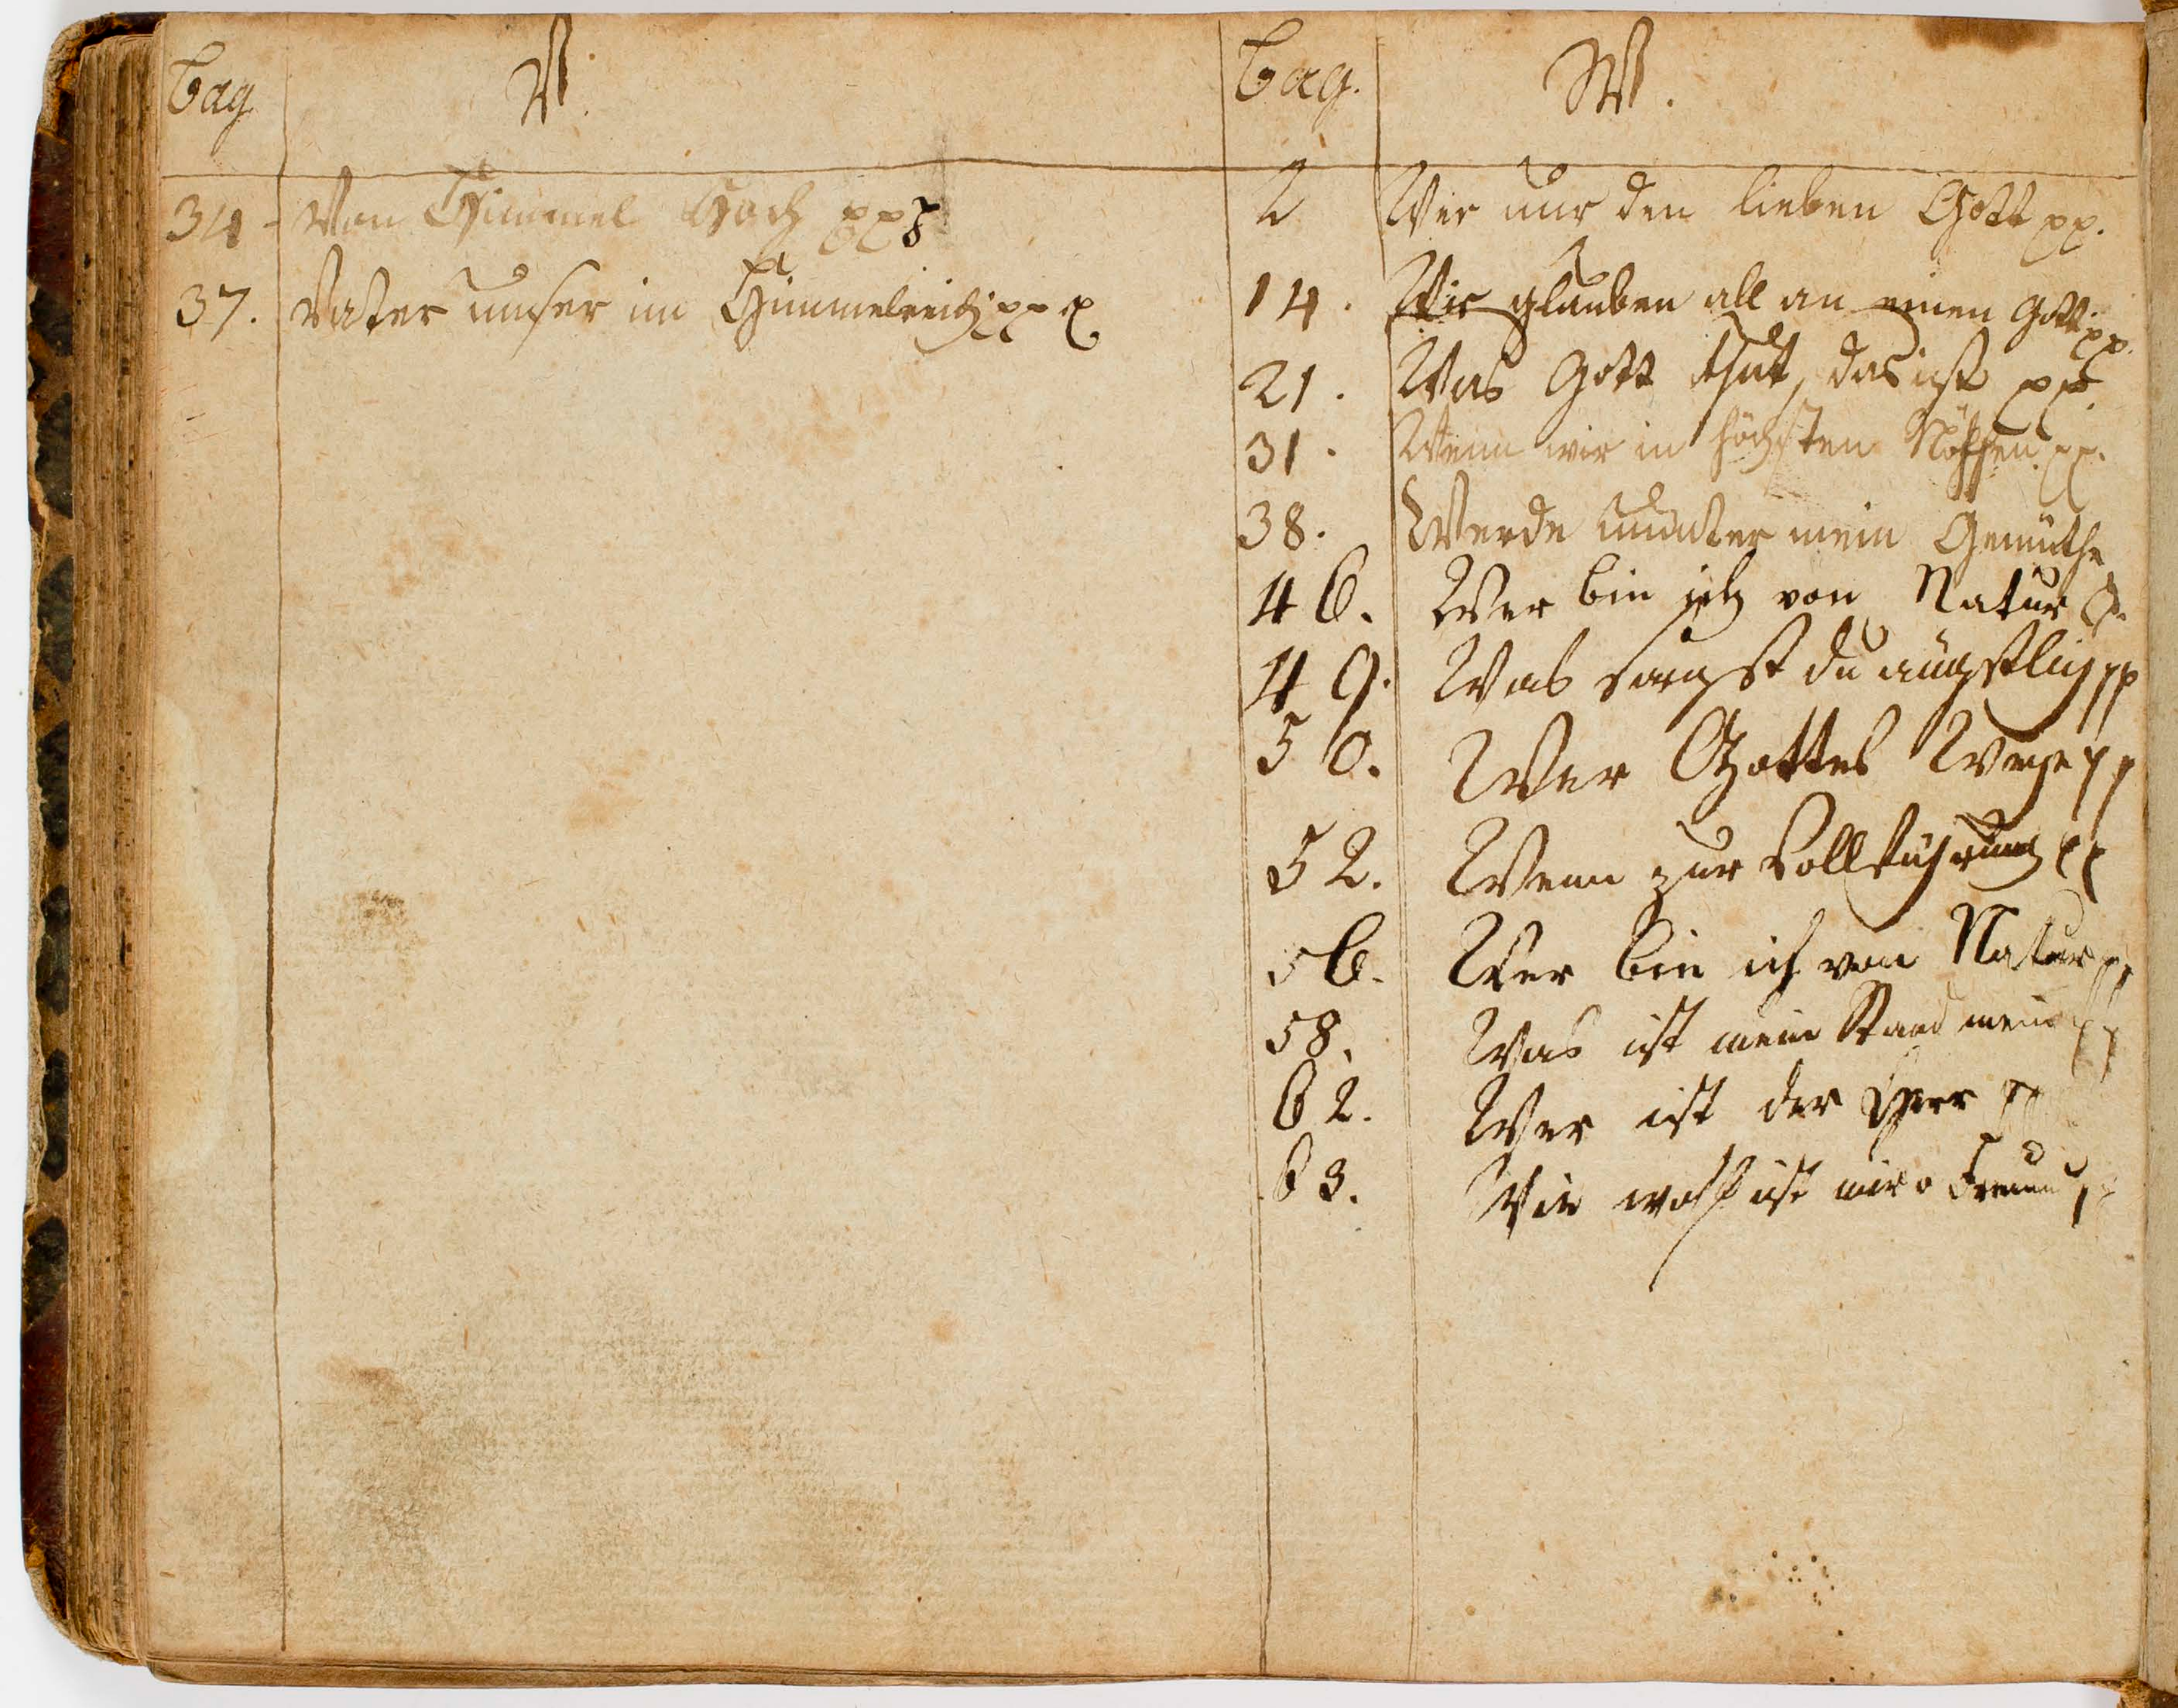 Pag V.
34. Von Himmel Hoch pp
37. Vater unser im Himmelreich pp
Pag. W.
2 Wer nur den lieben Gott pp.
14. Wir glauben all an einen Gott pp.
21. Was Gott thut, das ist pp.
31. Wenn wir in höchsten Nöthen pp.
38. Werde munter mein Gemüthe
46. Wer bin ich von Natur p.
49. Was sorgst du ängstlich pp
50. Wer Gottes Wege pp
52. Wenn zur Vollführung pp
56. Wer bin ich von Natur pp
58. Was ist mein Stand mein pp
62. Wer ist der Herr pp
63. Wie wohl ist mir o Freund